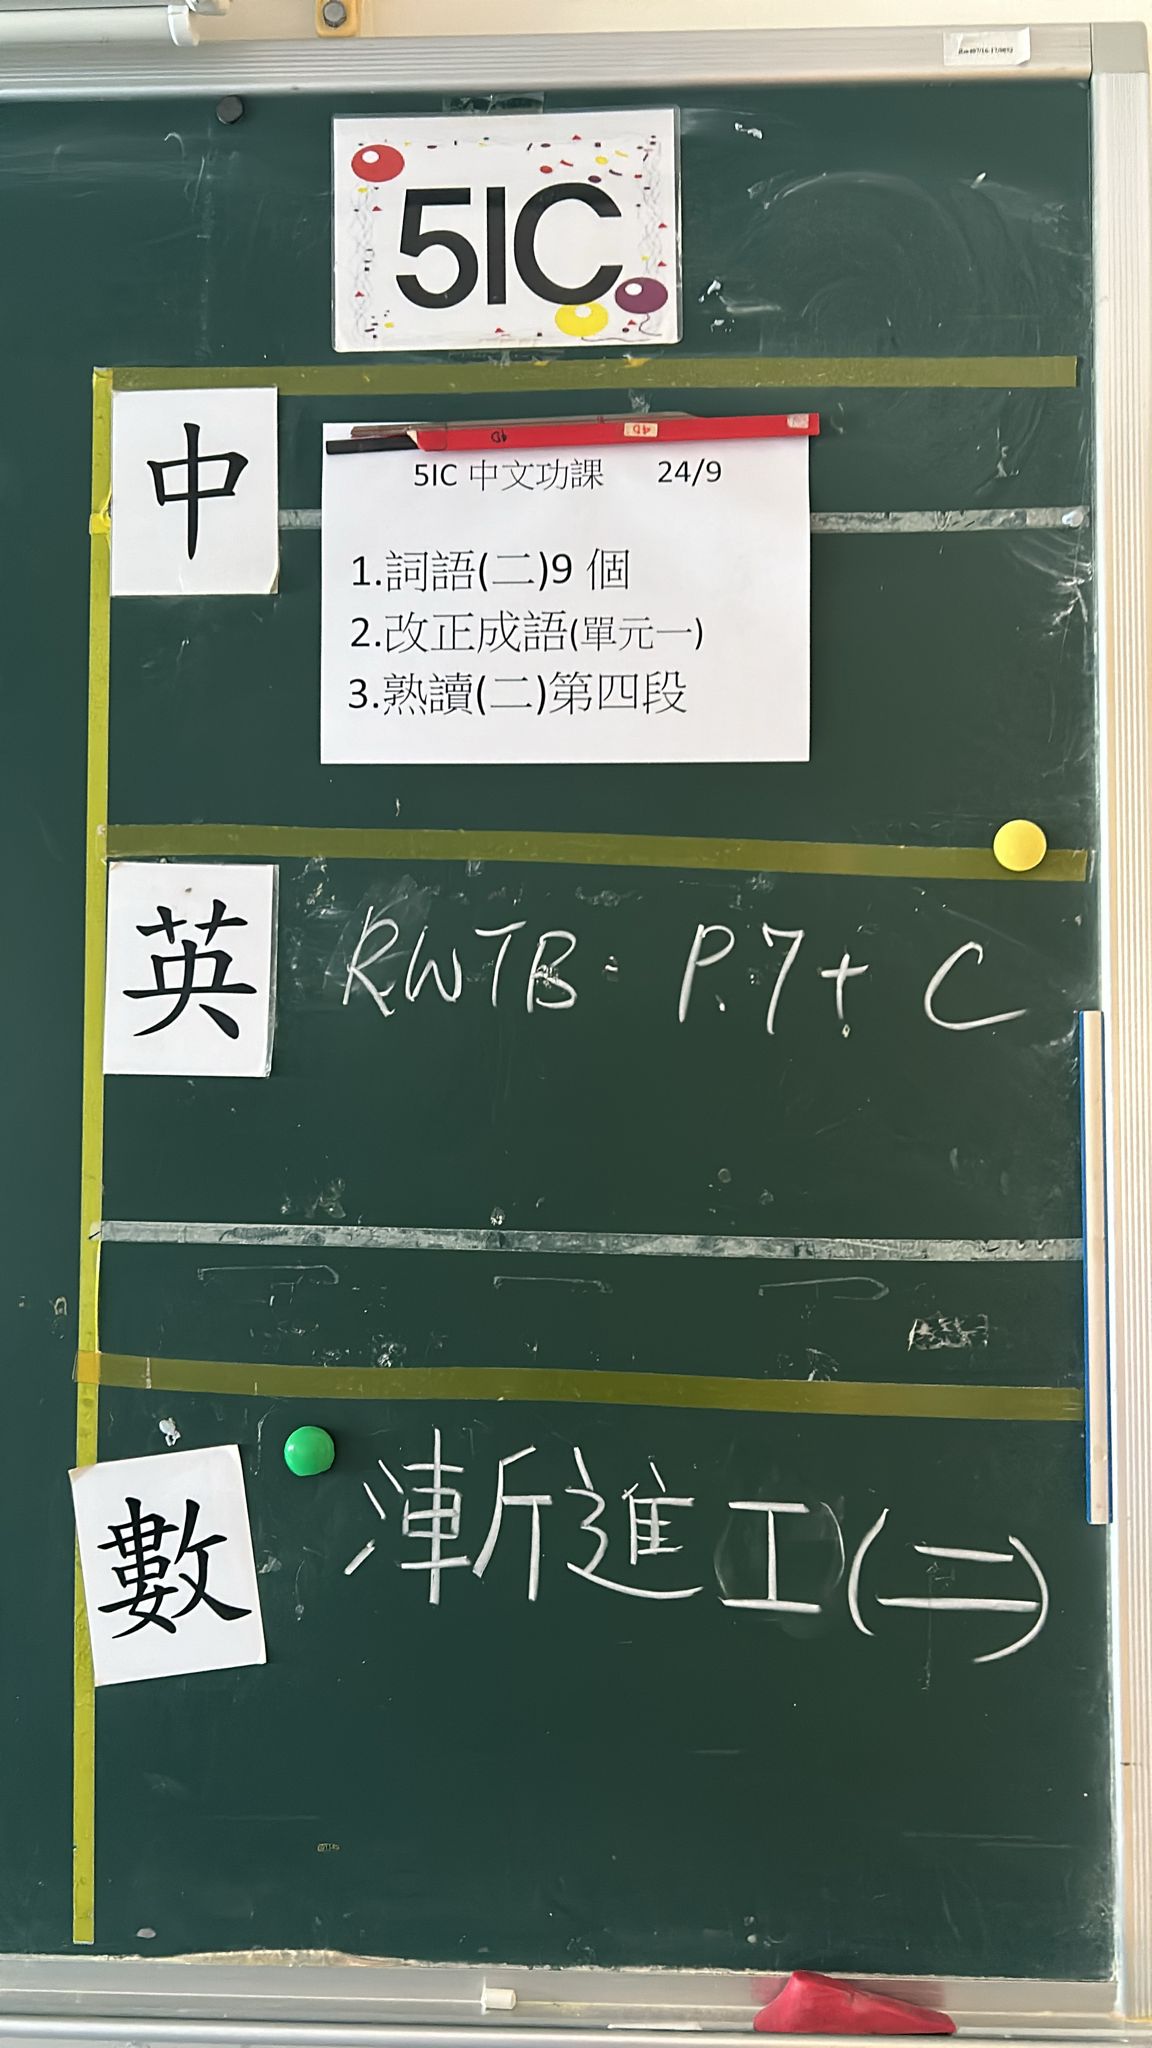 5IC
中
5IC 中文功課 24/9
1.詞語(二)9 個
2.改正成語(單元一)
3.熟讀(二)第四段
英
RWTB: P.7+ C
數
漸進工(二)